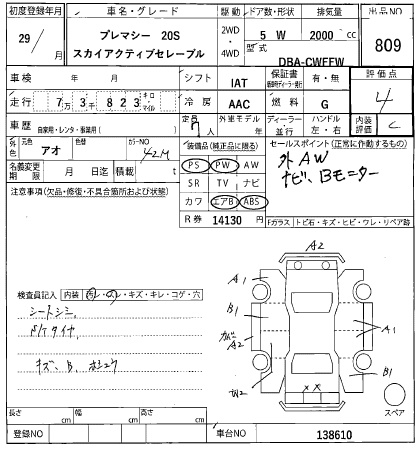 初度登録年月 車名・グレード 駆動 ドア数・形状 排気量 出品NO
29/ 月 プレマシー 20S 2WD・4WD 5 W 2000 cc 809
スカイアクティブセレーブル 型式 DBA-CWFFW
車検 年 月 シフト IAT 保証書 有・無 評価点
走行 7万3千823 キロ・マイル 冷房 AAC 燃料 G 4
車歴 自家用・レンタ・事業用( ) 定員 7人 外車モデル年 ディーラー 並行 ハンドル 左・右 内装評価 C
外色 元色 アオ カラーNO 42M 装備品(純正品に限る) セールスポイント(正常に作動するもの)
名義変更期限 月 日迄 積載 t PS PW AW 外AW
注意事項(欠品・修復・不具合箇所および状態) SR TV ナビ ナビ、Bモーター
カワ エアB ABS
R券 14130 円 Fガラス トビ石・キズ・ヒビ・ワレ・リペア跡
A2
A1
検査員記入 内装 汚レ・スレ・キズ・キレ・コゲ・穴 B1
シートシミ A1
A2
キズ、B、
B1
スペア
長さ cm 幅 cm 高さ cm
登録NO 車台NO 138610